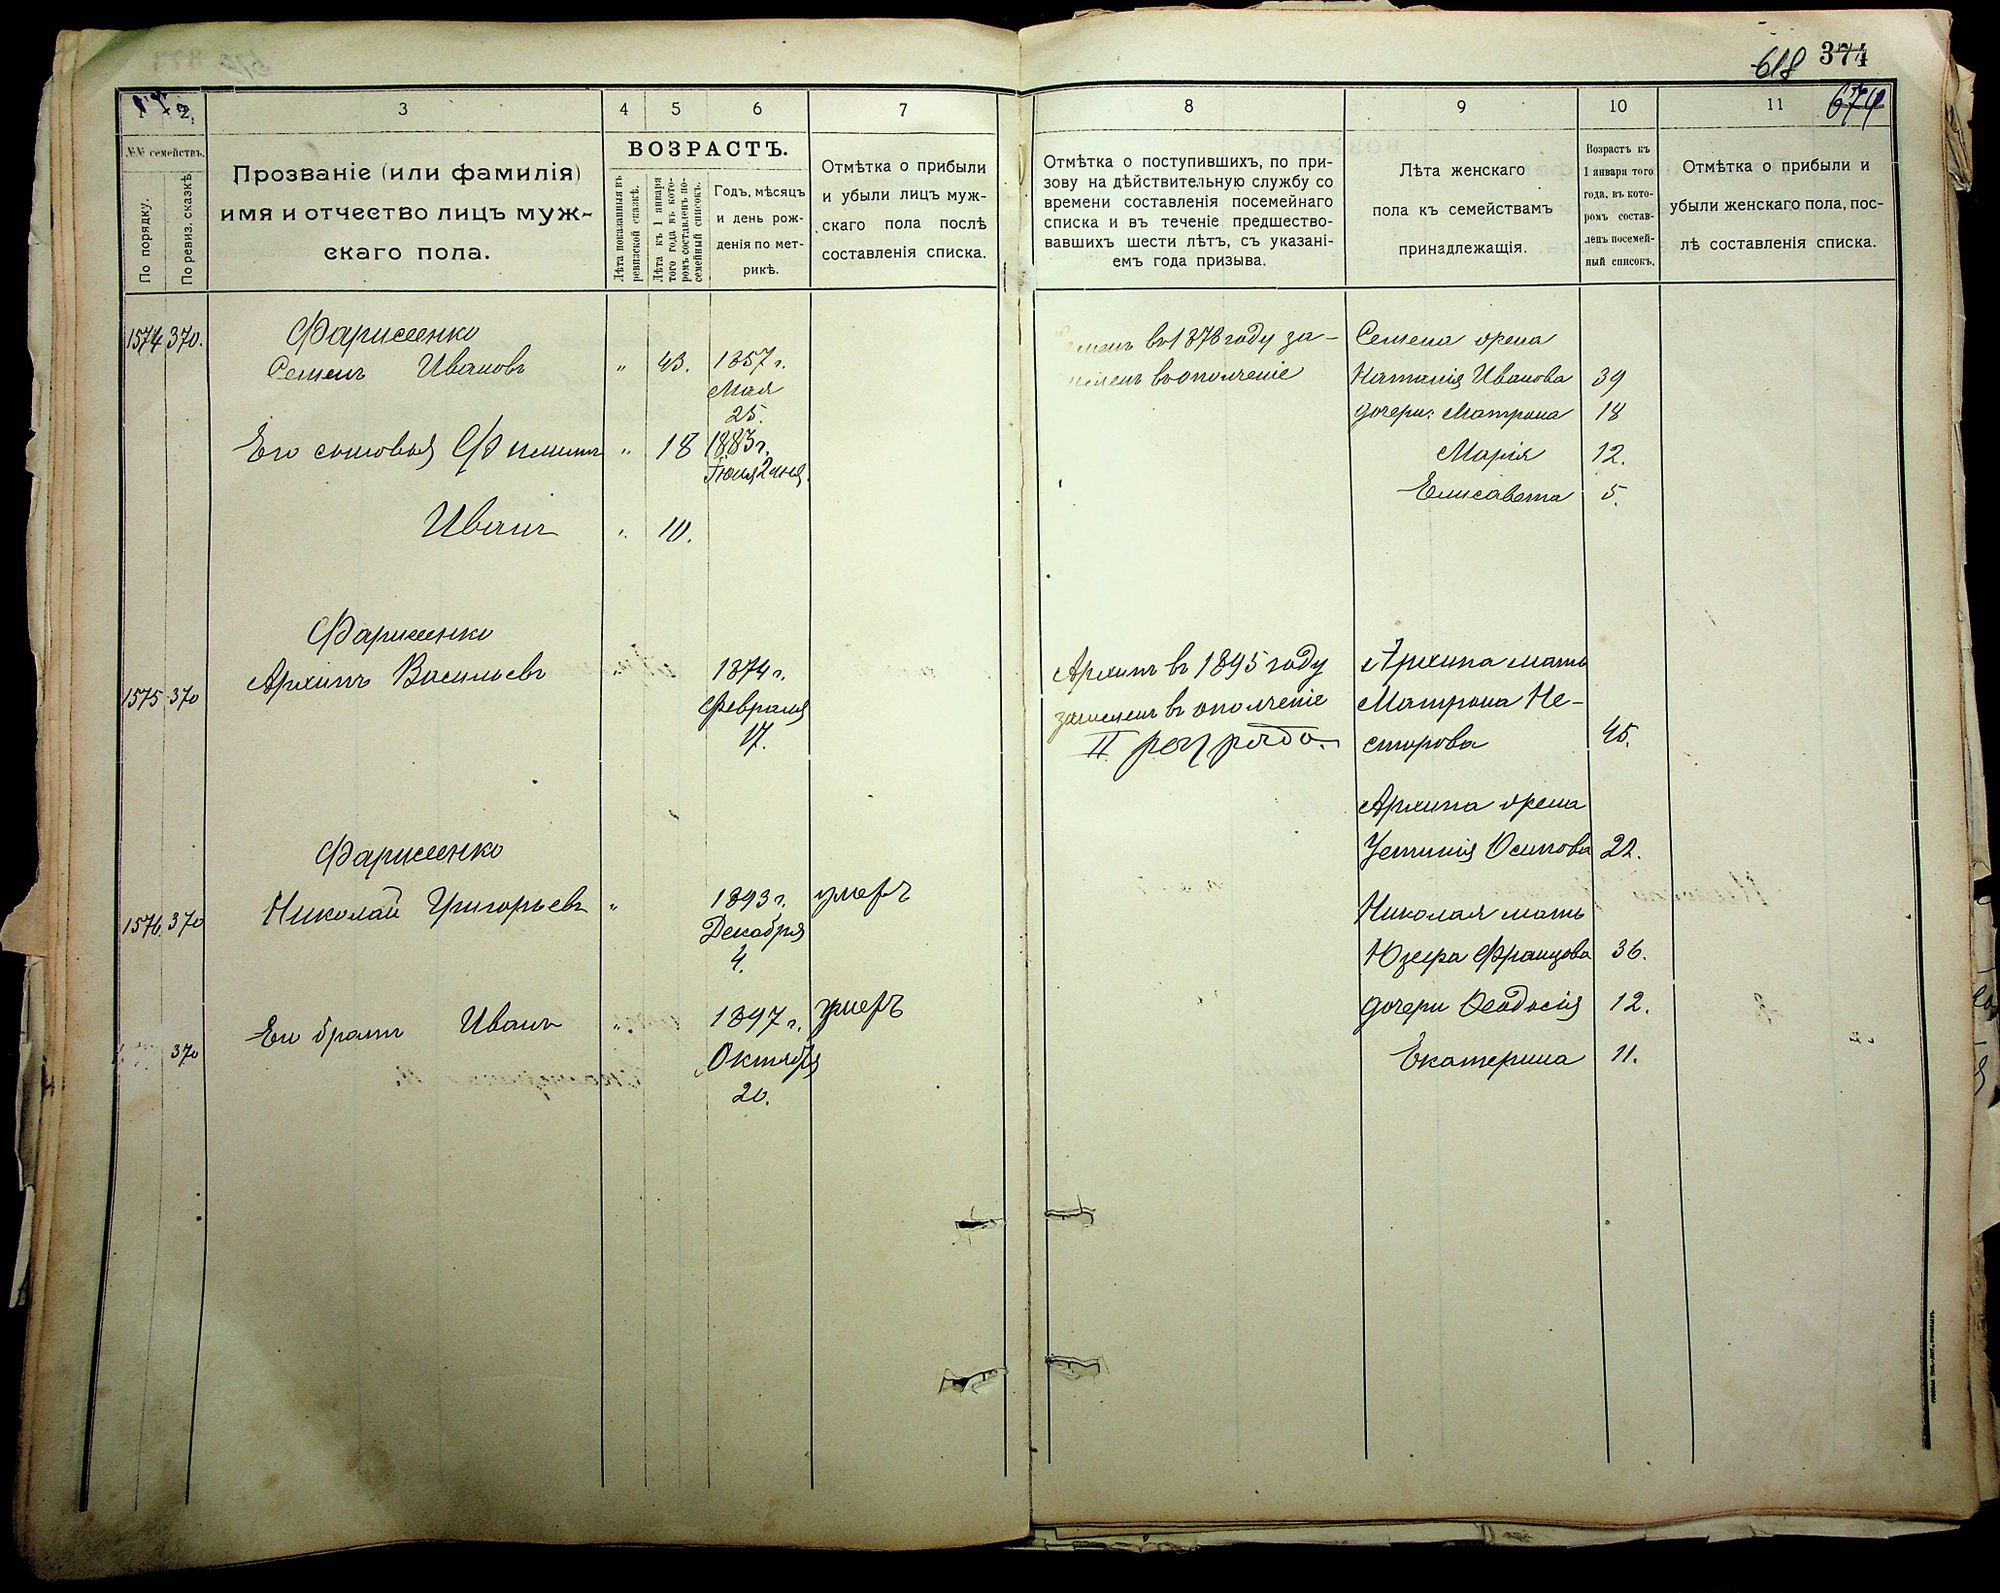 618 374
674
1 2
3
4
5
6
7
8
9
10
11
№№ семействъ.
По порядку.
По ревиз. сказкѣ
Прозваніе (или фамилія)
имя и отчество лицъ муж-
скаго пола.
ВОЗРАСТЪ.
Лѣта показанныя въ
ревизской сказкѣ.
Лѣта къ 1 января
того года въ кото-
ромъ составленъ по-
семейный списокъ.
Годъ, мѣсяцъ
и день рож-
денія по мет-
рикѣ.
Отмѣтка о прибыли
и убыли лицъ муж-
скаго пола послѣ
составленія списка.
Отмѣтка о поступившихъ, по при-
зову на дѣйствительную службу со
времени составленія посемейнаго
списка и въ теченіе предшество-
вавшихъ шести лѣтъ, съ указані-
емъ года призыва.
Лѣта женскаго
пола къ семействамъ
принадлежащія.
Возрастъ къ
1 января того
года, въ кото-
ромъ состав-
ленъ посемей-
ный списокъ.
Отмѣтка о прибыли и
убыли женскаго пола, пос-
лѣ составленія списка.
1574 370.
Фарисеенко
Семенъ Ивановъ " 43. 1857 г.
Мая
25.
Его сыновья Филиппъ " 18 1883 г.
Іюля 2 дня.
Иванъ " 10.
Семенъ въ 1878 году за-
численъ въ ополченіе
Семена жена
Наталія Иванова 39
дочери: Матрона 18
Марія 12.
Елисавета 5.
Фарисеенко
1575 370
Архипъ Васильевъ " 1874 г.
Февраля
17.
Архипъ въ 1895 году
зачисленъ въ ополченіе
II разряда.
Архипа мать
Матрона Не-
сторова 45.
Архипа жена
Устинія Осипова 22.
Фарисеенко
1576. 370
Николай Григорьевъ " 1893 г. умеръ
Декабря
4.
Николая мать
Юзефа Францова 36.
дочери Феодосія 12.
Екатерина 11.
370
Его братъ Иванъ " 1897 г. умеръ
Октября
20.